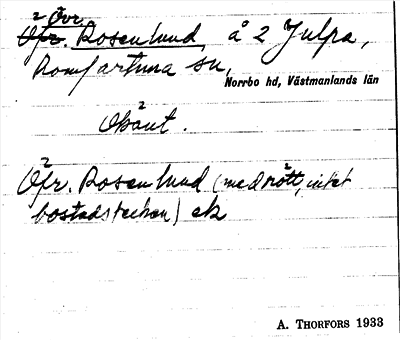 Övr.
Öfr. Rosenlund, å 2 Julpa,
Romfartuna sn,
Norrbo hd, Västmanlands län
Okänt.
Öfr. Rosenlund (med rött, intet
bostadstecken) ek
A. THORFORS 1933